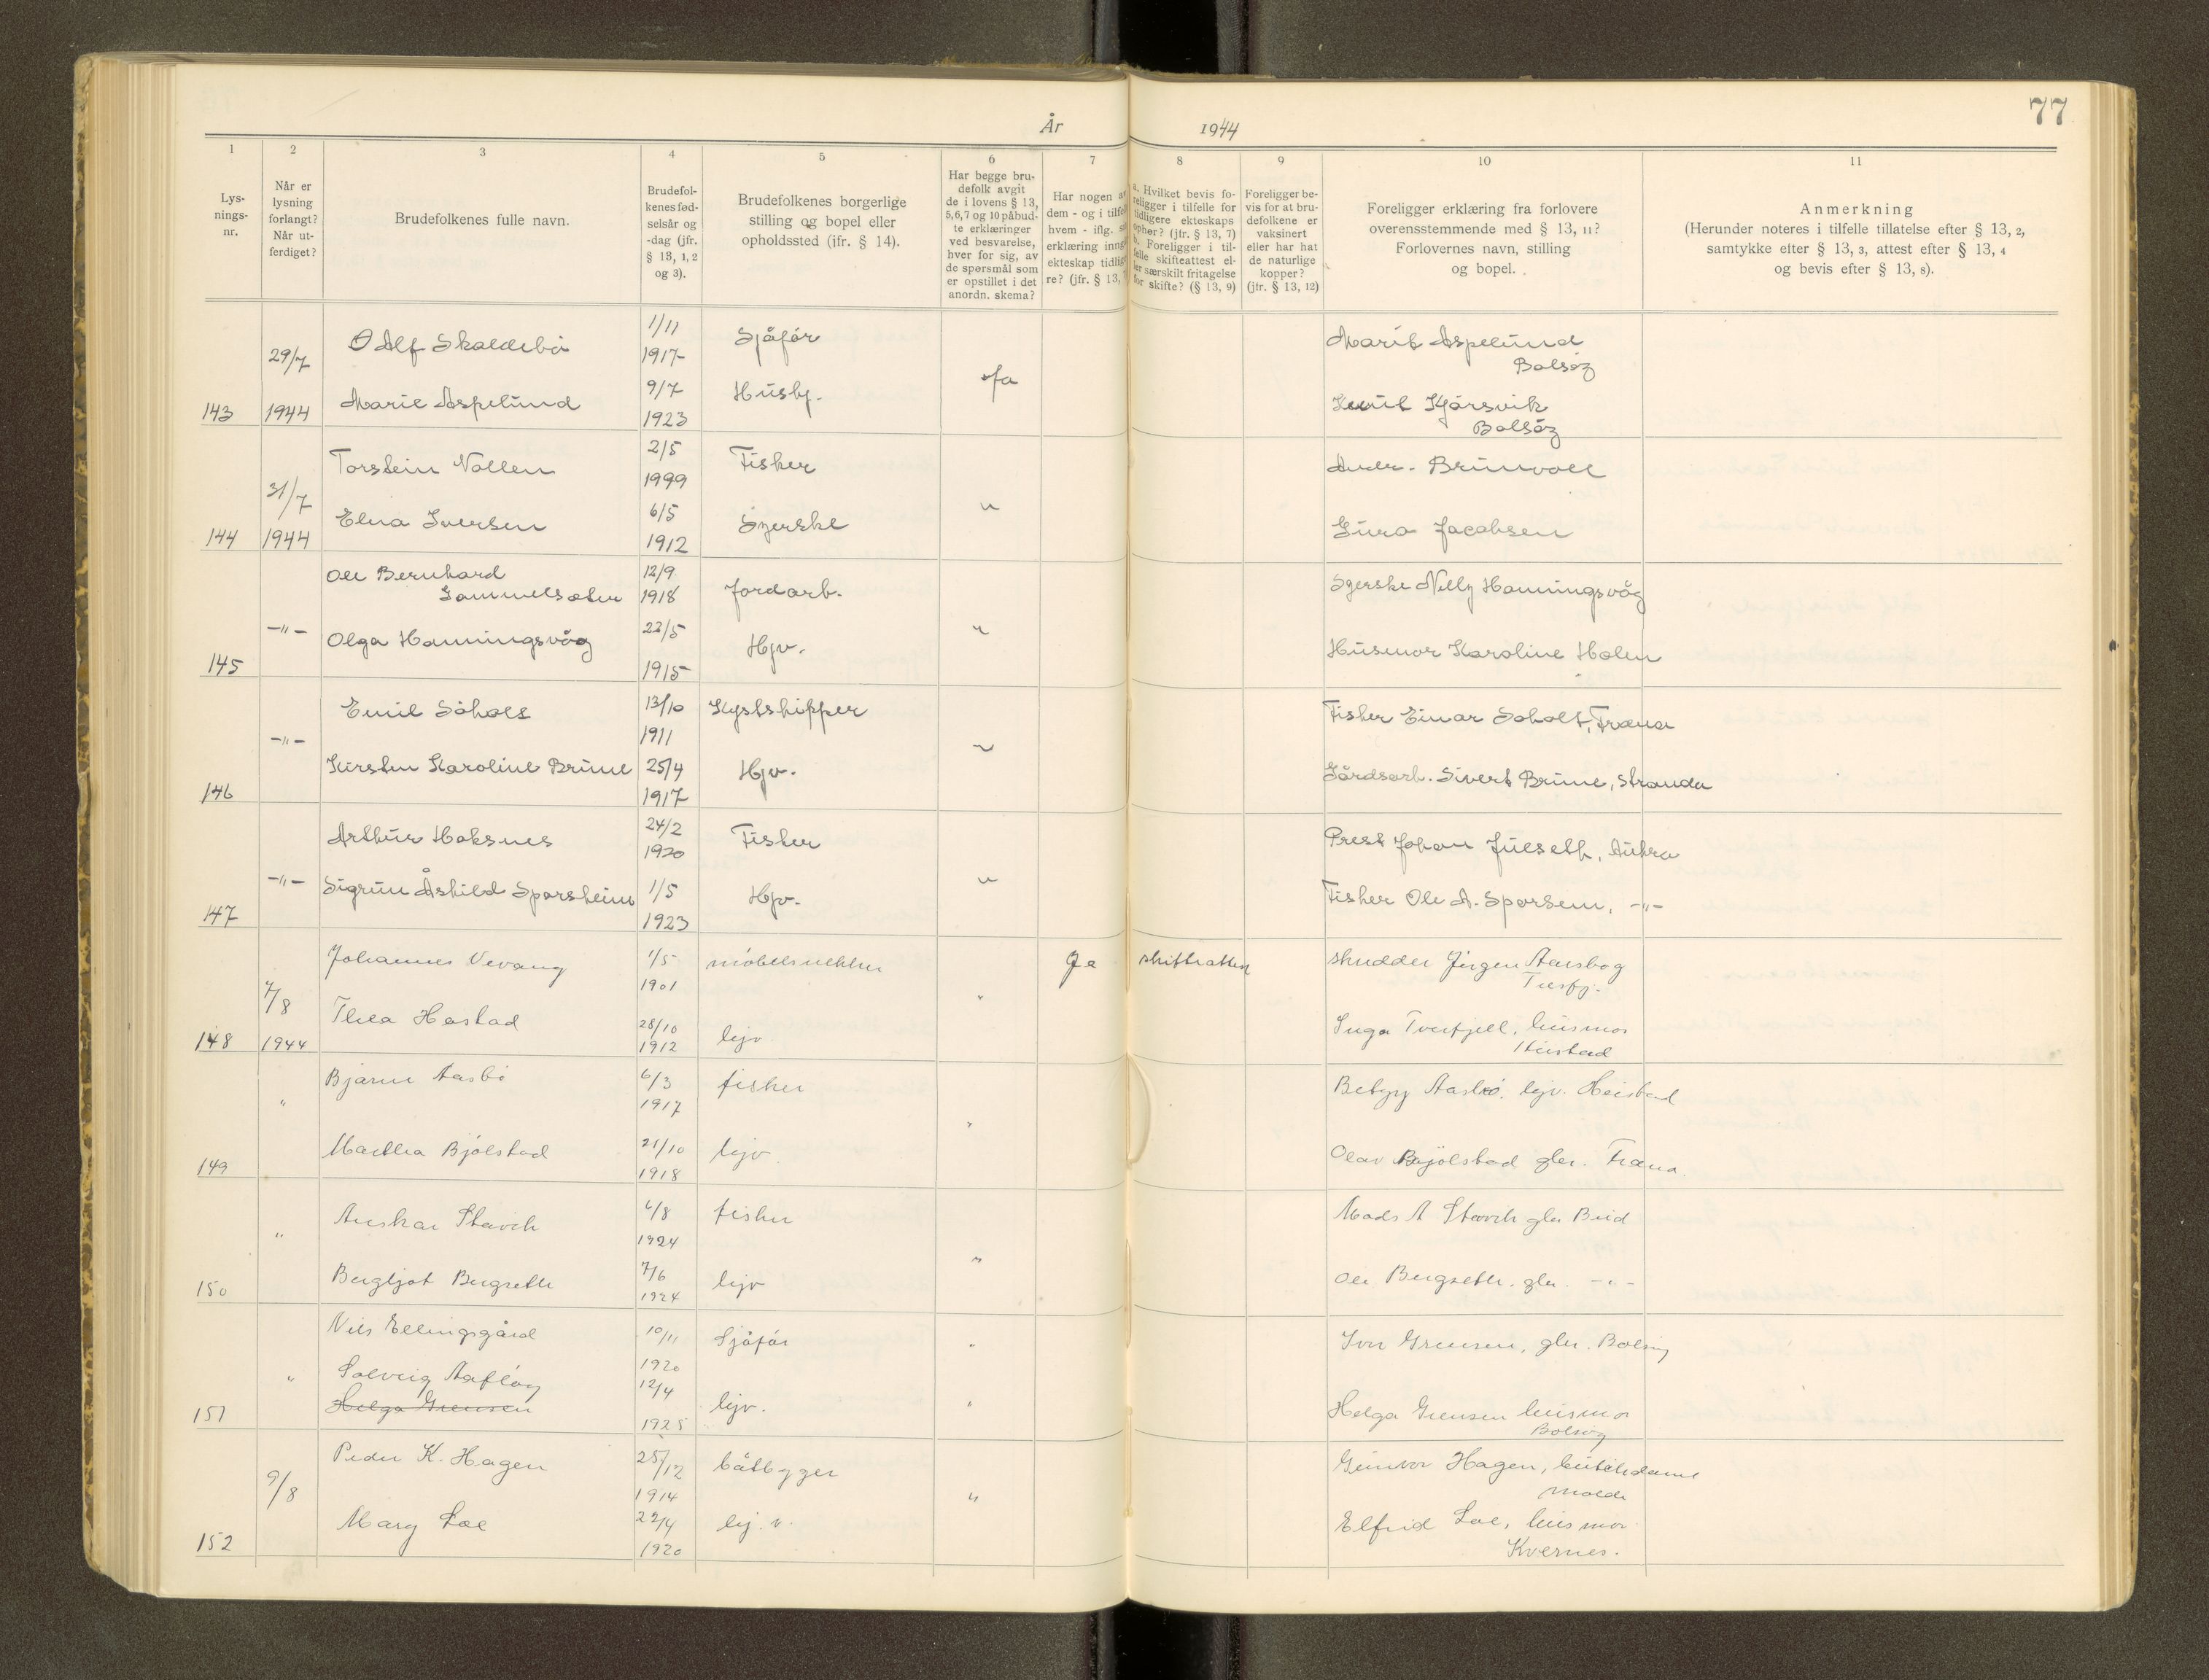 77
År 1944
1 2 3 4 5 6 7 8 9 10 11
Lysnings-nr.
Når er lysning forlangt? Når ut-ferdiget?
Brudefolkenes fulle navn.
Brudefol-kenes fød-selsår og -dag (jfr. § 13, 1, 2 og 3).
Brudefolkenes borgerlige stilling og bopel eller opholdssted (jfr. § 14).
Har begge bru-defolk avgit de i lovens § 13, 5,6,7 og 10 påbud-te erklæringer ved besvarelse, hver for sig, av de spørsmål som er opstillet i det anordn. skema?
Har nogen av dem - og i tilfelle hvem - iflg. erklæring inngått ekteskap tidligere? (jfr. § 13,
a. Hvilket bevis fo-religger i tilfelle for tidligere ekteskaps ophør? (jfr. § 13, 7) b. Foreligger i til-felle skifteattest el-ler særskilt fritagelse for skifte? (§ 13, 9)
Foreligger be-vis for at bru-defolkene er vaksinert eller har hat de naturlige kopper? (jfr. § 13, 12)
Foreligger erklæring fra forlovere overensstemmende med § 13, 11? Forlovernes navn, stilling og bopel.
Anmerkning (Herunder noteres i tilfelle tillatelse efter § 13, 2, samtykke efter § 13, 3, attest efter § 13, 4 og bevis efter § 13, 8).
O Alf Skaldebø 1/11 1917 Sjåfør Marit Aspelund Bolsøy
143 29/7 1944 Marie Aspelund 9/7 1923 Husbj. Ja Knut Kjørsvik Bolsøy
Torstein Nollen 2/5 1999 Fisker Andr. Brunvoll
144 31/7 1944 Elna Iversen 6/5 1912 Syerske " Gura Jacobsen
Ole Bernhard Sammelsæter 12/9 1918 Jordarb. Syerske Nelly Hanningsvåg
145 -"- Olga Hanningsvåg 22/5 1915 Hjv. " Husmor Karoline Holen
Emil Søholt 13/10 1911 Kystskipper Fisker Einar Søholt, Fræna
146 -"- Kirsten Karoline Brune 25/4 1917 Hjv. " Gårdsarb. Sivert Brune, Stranda
Arthur Hoksnes 24/2 1920 Fisker Prest Johan Julseth, Aukra
147 -"- Sigrun Åshild Sporsheim 1/5 1923 Hjv. " Fisker Ole A. Sporsem, -"-
Johannes Vevang 1/5 1901 møbelsnekker Ja skifteattest skredder Jørgen Aarsbog
148 7/8 1944 Thea Hostad 28/10 1912 hjv " Inga Tverfjell, husmor Hustad
Bjarne Aasbø 6/3 1917 fisker Betzy Aasbø. hjv. Hustad
149 " Martha Bjølstad 21/10 1918 hjv. " Olav Bjølstad gbr. Fræna.
Anskar Stavik 6/8 1924 fisker Mads A Stavik gbr Bud
150 " Bergljot Bergseth 7/6 1924 hjv " Ole Bergseth. gbr. -"-
Nils Ellingsgård 10/11 1920 Sjåfør " Ivar Grensen, gbr. Bolsøy
151 " Solveig Aafløy Helga Grensen 12/4 1925 hjv. " Helga Grensen husmor Bolsøy
Peder K. Hagen 25/12 1914 båtbygger Gunvor Hagen, butikdame Molde
152 9/8 Mary Loe 22/4 1920 hj. v. " Elfrid Loe, husmor Kvernes.